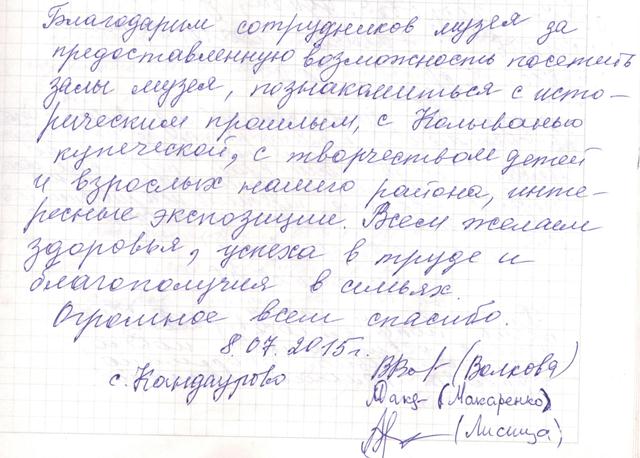 Благодарим сотрудников музея за
предоставленную возможность посетить
залы музея, познакомиться с исто-
рическим прошлым, с Колыванью
купеческой, с творчеством детей
и взрослых нашего района, инте-
ресные экспозиции. Всем желаем
здоровья, успеха в труде и
благополучия в семьях.
Огромное всем спасибо.
8.07.2015г.
с. Кандаурово
(Волкова)
(Макаренко)
(Лисица)